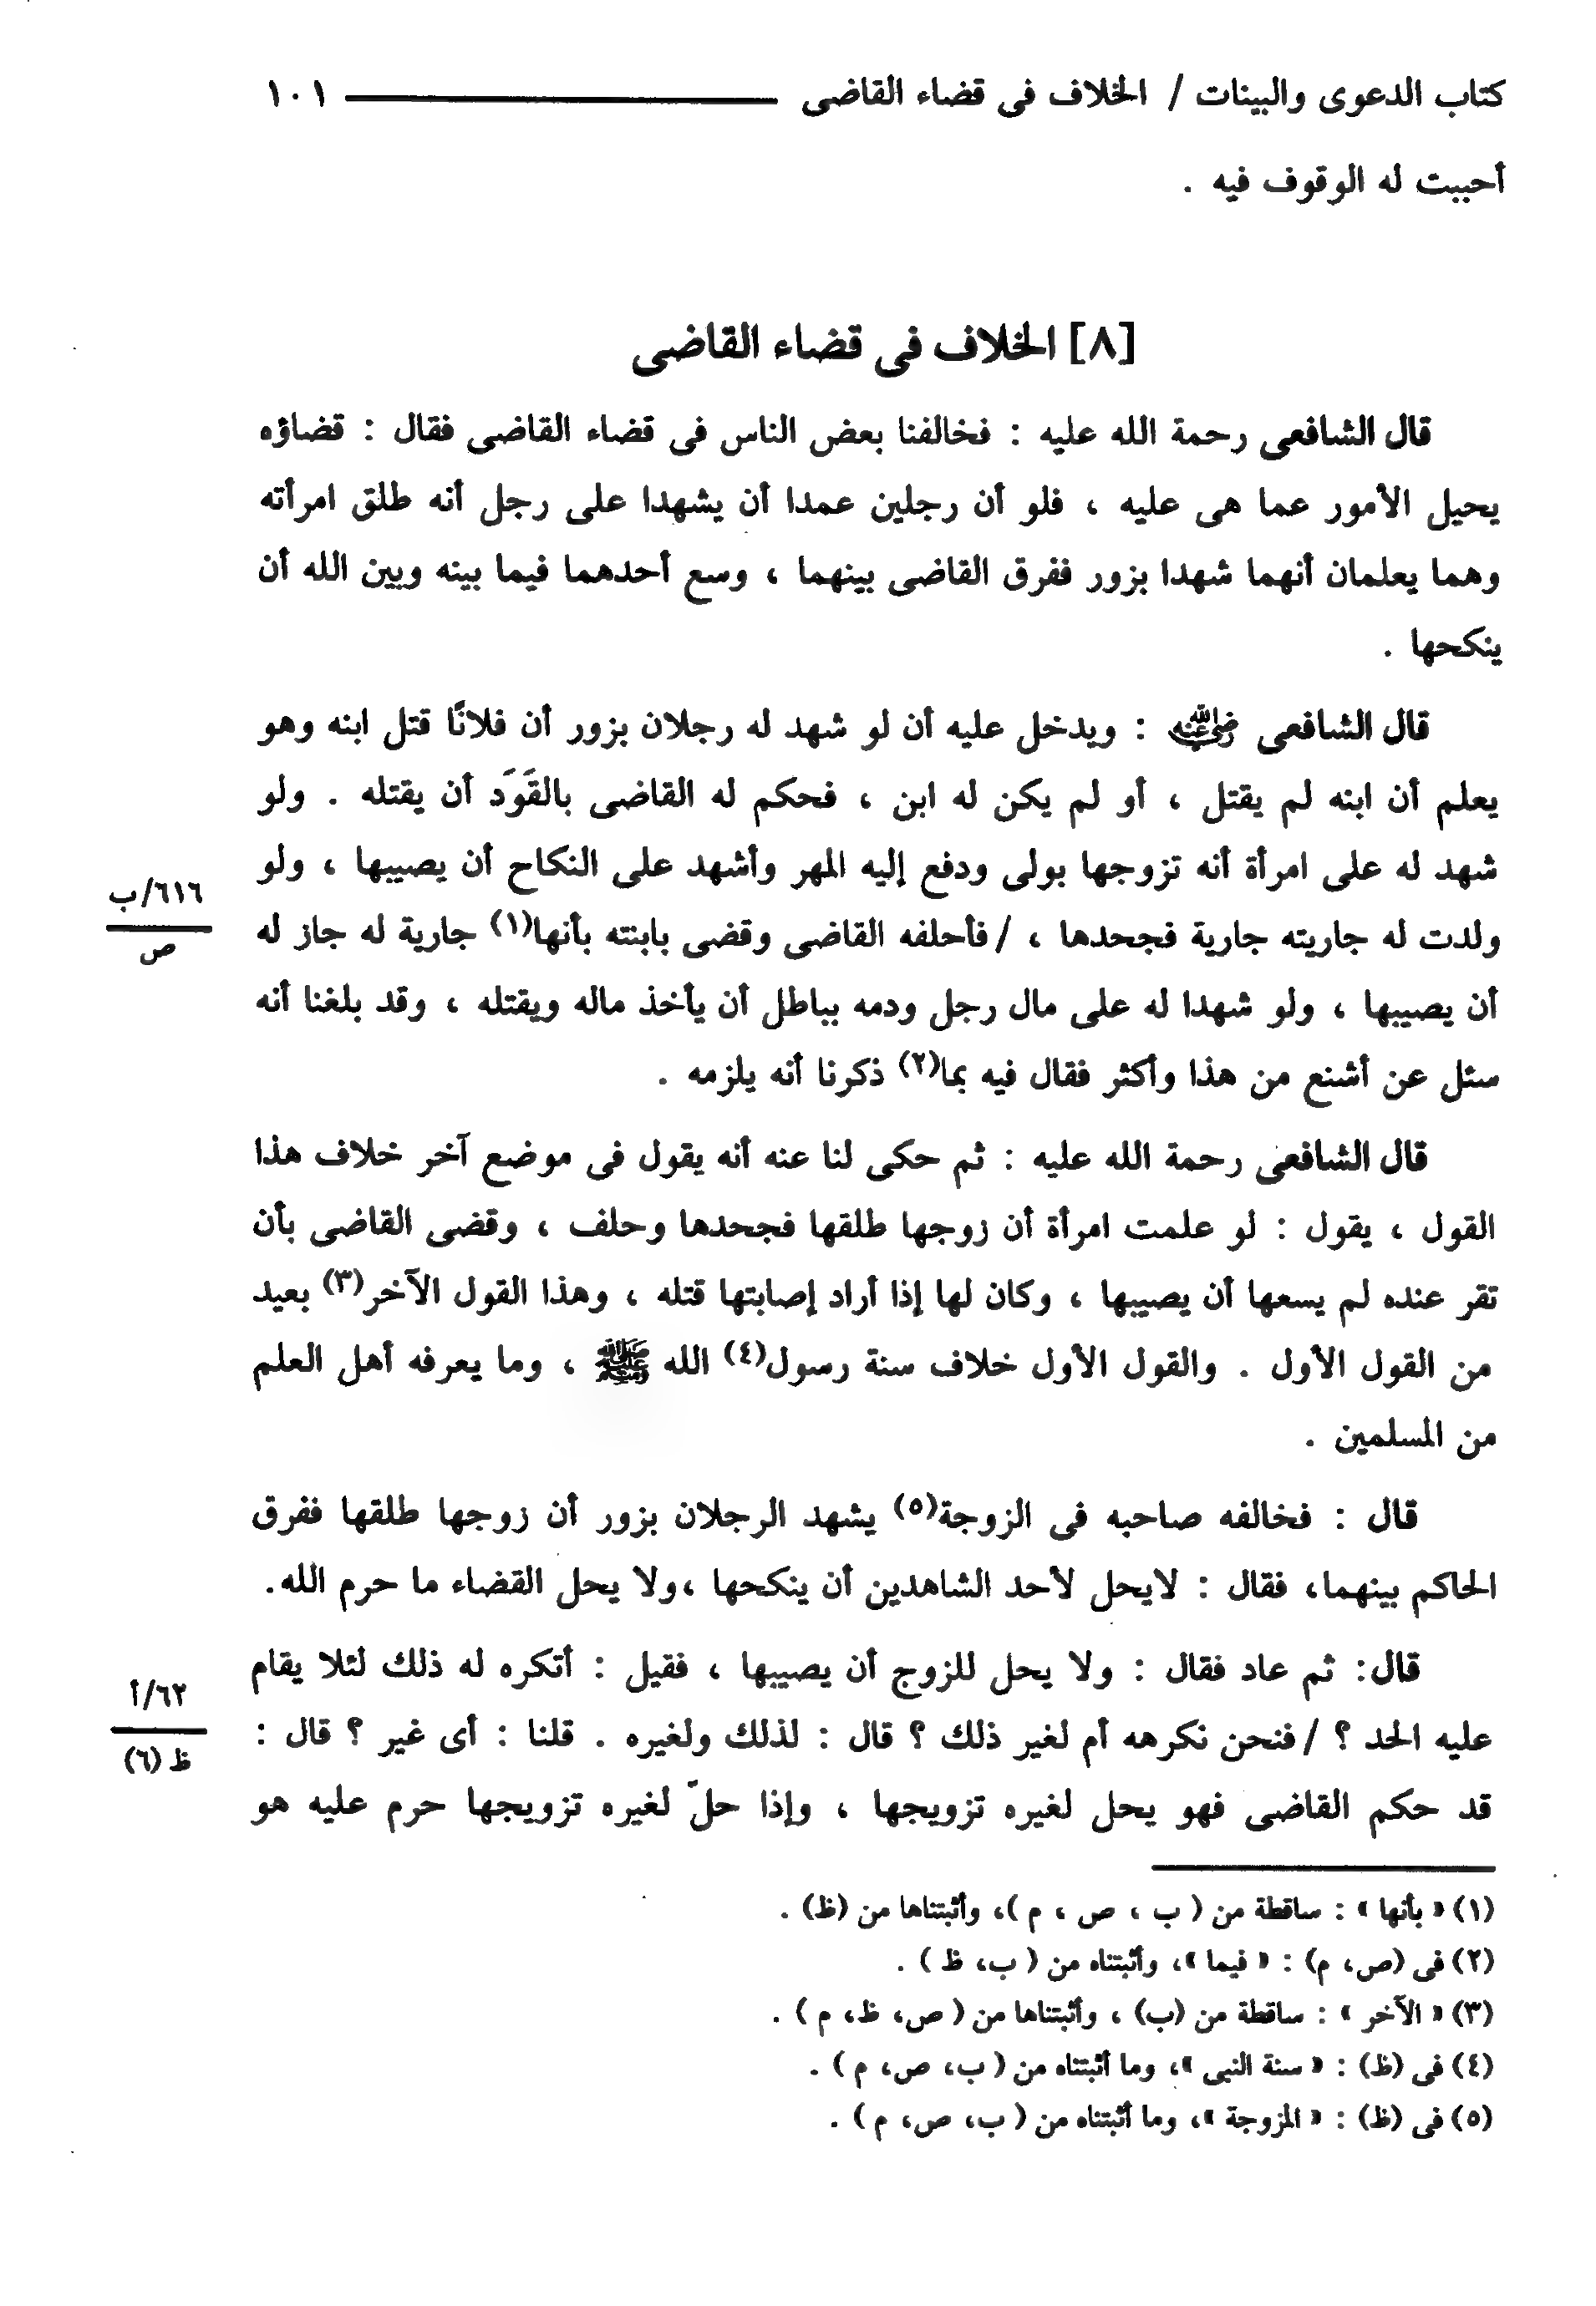 كتاب الدعوى والبينات / الخلاف فى قضاء القاضى ــــــــــــــــ ١٠١
أحببت له الوقوف فيه .
[٨] الخلاف فى قضاء القاضى
قال الشافعى رحمة الله عليه : فخالفنا بعض الناس فى قضاء القاضى فقال : قضاؤه
يحيل الأمور عما هى عليه ، فلو أن رجلين عمدا أن يشهدا على رجل أنه طلق امرأته
وهما يعلمان أنهما شهدا بزور ففرق القاضى بينهما ، وسع أحدهما فيما بينه وبين الله أن
ينكحها .
قال الشافعى رضي الله عنه : ويدخل عليه أن لو شهد له رجلان بزور أن فلانًا قتل ابنه وهو
يعلم أن ابنه لم يقتل ، أو لم يكن له ابن ، فحكم له القاضى بالقَوَد أن يقتله . ولو
شهد له على امرأة أنه تزوجها بولى ودفع إليه المهر وأشهد على النكاح أن يصيبها ، ولو
٦١٦/ب
ولدت له جاريته جارية فجحدها ، /فأحلفه القاضى وقضى بابنته بأنها(١) جارية له جاز له
ص
أن يصيبها ، ولو شهدا له على مال رجل ودمه بباطل أن يأخذ ماله ويقتله ، وقد بلغنا أنه
سئل عن أشنع من هذا وأكثر فقال فيه بما(٢) ذكرنا أنه يلزمه .
قال الشافعى رحمة الله عليه : ثم حكى لنا عنه أنه يقول فى موضع آخر خلاف هذا
القول ، يقول : لو علمت امرأة أن زوجها طلقها فجحدها وحلف ، وقضى القاضى بأن
تقر عنده لم يسعها أن يصيبها ، وكان لها إذا أراد إصابتها قتله ، وهذا القول الآخر(٣) بعيد
من القول الأول . والقول الأول خلاف سنة رسول(٤) الله ﷺ ، وما يعرفه أهل العلم
من المسلمين .
قال : فخالفه صاحبه فى الزوجة(٥) يشهد الرجلان بزور أن زوجها طلقها ففرق
الحاكم بينهما، فقال : لايحل لأحد الشاهدين أن ينكحها ،ولا يحل القضاء ما حرم الله.
قال: ثم عاد فقال : ولا يحل للزوج أن يصيبها ، فقيل : أتكره له ذلك لئلا يقام
٦٢/أ
عليه الحد ؟ /فنحن نكرهه أم لغير ذلك ؟ قال : لذلك ولغيره . قلنا : أى غير ؟ قال :
ظ (٦)
قد حكم القاضى فهو يحل لغيره تزويجها ، وإذا حلّ لغيره تزويجها حرم عليه هو
(١) « بأنها » : ساقطة من ( ب ، ص ، م )، وأثبتناها من (ظ) .
(٢) فى (ص، م) : « فيما »، وأثبتناه من ( ب، ظ ) .
(٣) « الآخر » : ساقطة من (ب) ، وأثبتناها من ( ص، ظ، م ) .
(٤) فى (ظ) : « سنة النبى »، وما أثبتناه من ( ب، ص، م ) .
(٥) فى (ظ) : « المزوجة »، وما أثبتناه من ( ب، ص، م ) .